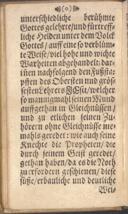 (o)
unterschiedliche berühmte
Gottes gelehrte/und fürtreff-
liche Helden unter dem Volck
Gottes / auff eine so verblümte
Weise/ viel hohe und wichte
Warheiten abgehandelt: dar-
unter nachfolgends den Füß-
pfen des Obersten und gröss-
sesten Ehren JEsu/ welcher
so mannigmahl seinen Mund
auffgethan in Gleichnüssen/
und zu etlichen seinen Zu-
hörern ohne Gleichnüsse nie-
mahls geredet: wie auch seine
Knechte die Propheten/ die
durch seinen Geist geredet/
gethan haben/ da es die Noth
zu erfordern geschienen/ diese
süsse/ erbauliche und deutliche
Wei-